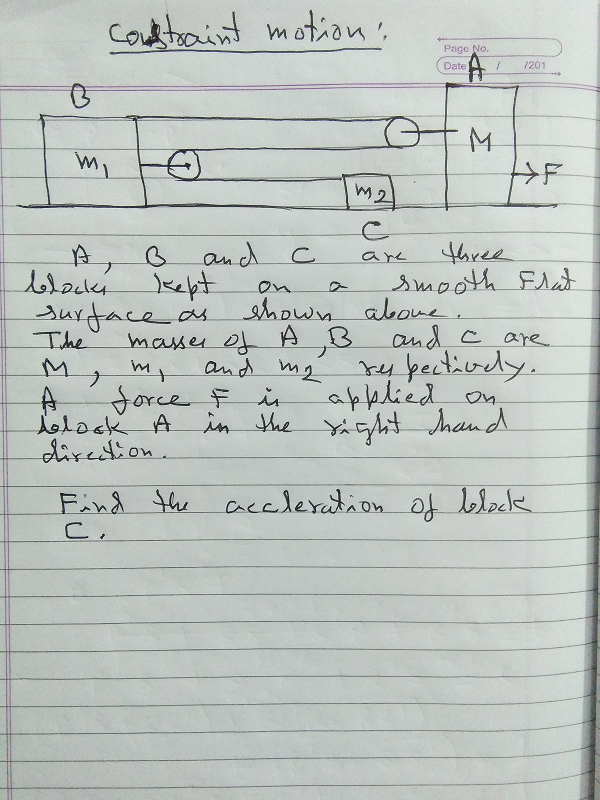 Constraint motion:
Page No.
Date / /201
A
B
m1
M
F
m2
C
A, B and C are three
blocks kept on a smooth Flat
surface as shown above.
The masses of A, B and C are
M, m1 and m2 respectively.
A force F is applied on
block A in the right hand
direction.
Find the accleration of block
C.